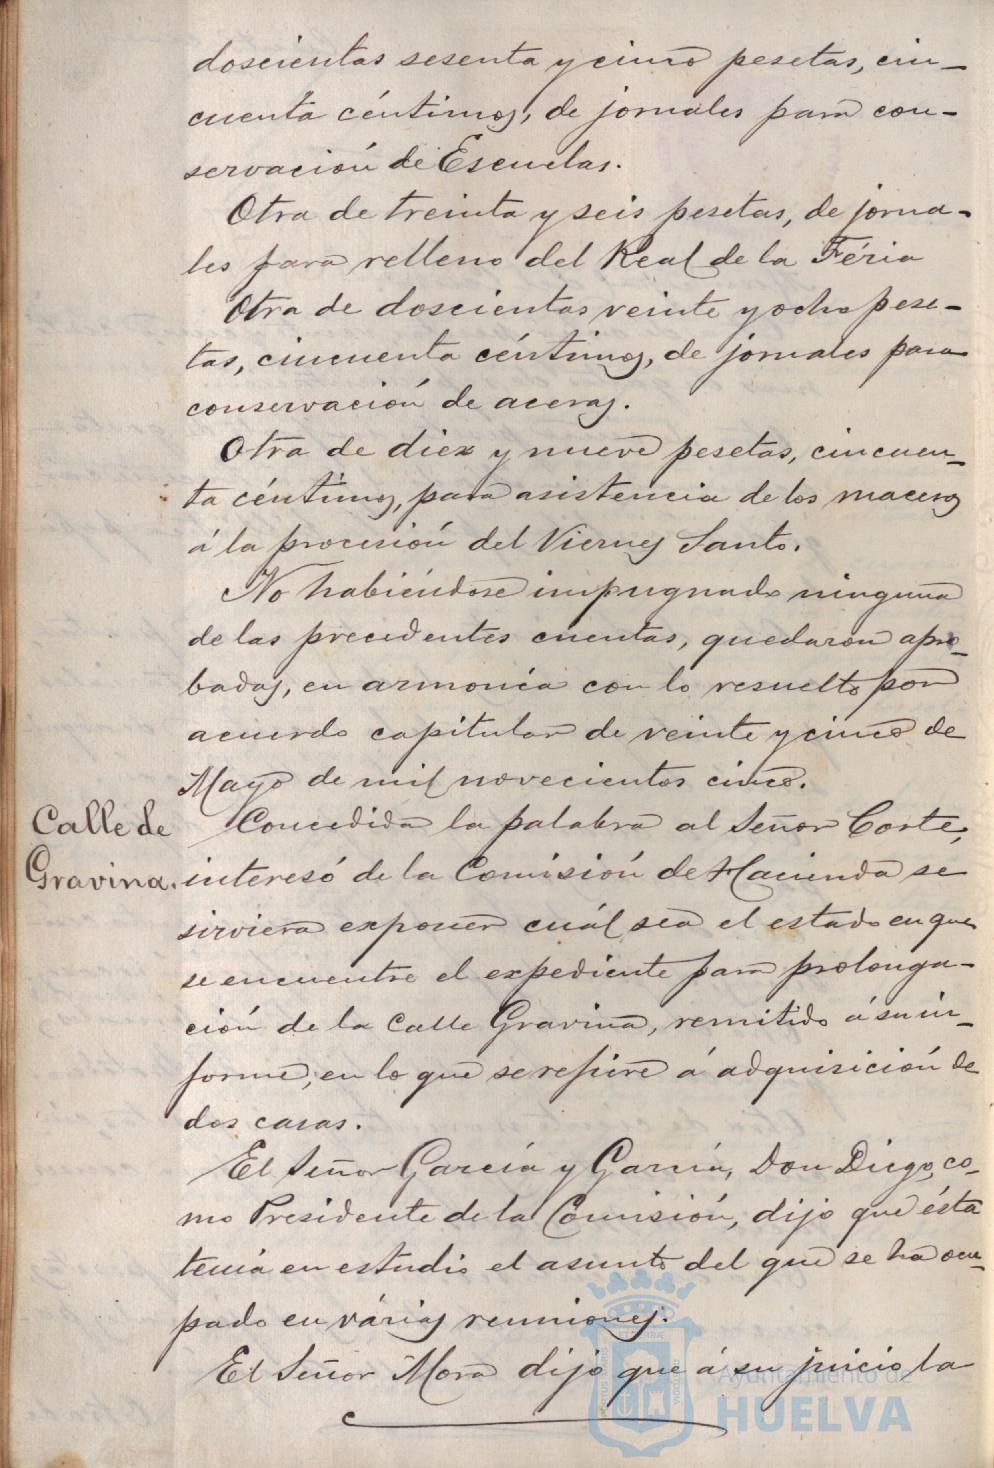 doscientas sesenta y cinco pesetas, cin-
cuenta céntimos, de jornales para con-
servación de Escuelas.
Otra de treinta y seis pesetas, de jorna-
les para relleno del Real de la Féria
Otra de doscientas veinte y ocho pese-
tas, cincuenta céntimos, de jornales para
conservación de aceras.
Otra de diez y nueve pesetas, cincuen-
ta céntimos, para asistencia de los maceros
á la procesión del Viernes Santo.
No habiéndose impugnado ninguna
de las precedentes cuentas, quedaron apro-
badas, en armonía con lo resuelto por
acuerdo capitular de veinte y cinco de
Mayo de mil novecientos cinco.
Calle de
Gravina.
Concedida la palabra al Señor Corte,
interesó de la Comisión de Hacienda se
sirviera exponer cuál sea el estado en que
se encuentre el expediente para prolonga-
ción de la Calle Gravina, remitido á su in-
forme, en lo que se refiere á adquisición de
dos casas.
El Señor García y García, Don Diego, co-
mo Presidente de la Comisión, dijo que ésta
tenía en estudio el asunto del que se ha ocu-
pado en várias reuniones.
El Señor Mora dijo que á su juicio la
Ayuntamiento de
HUELVA